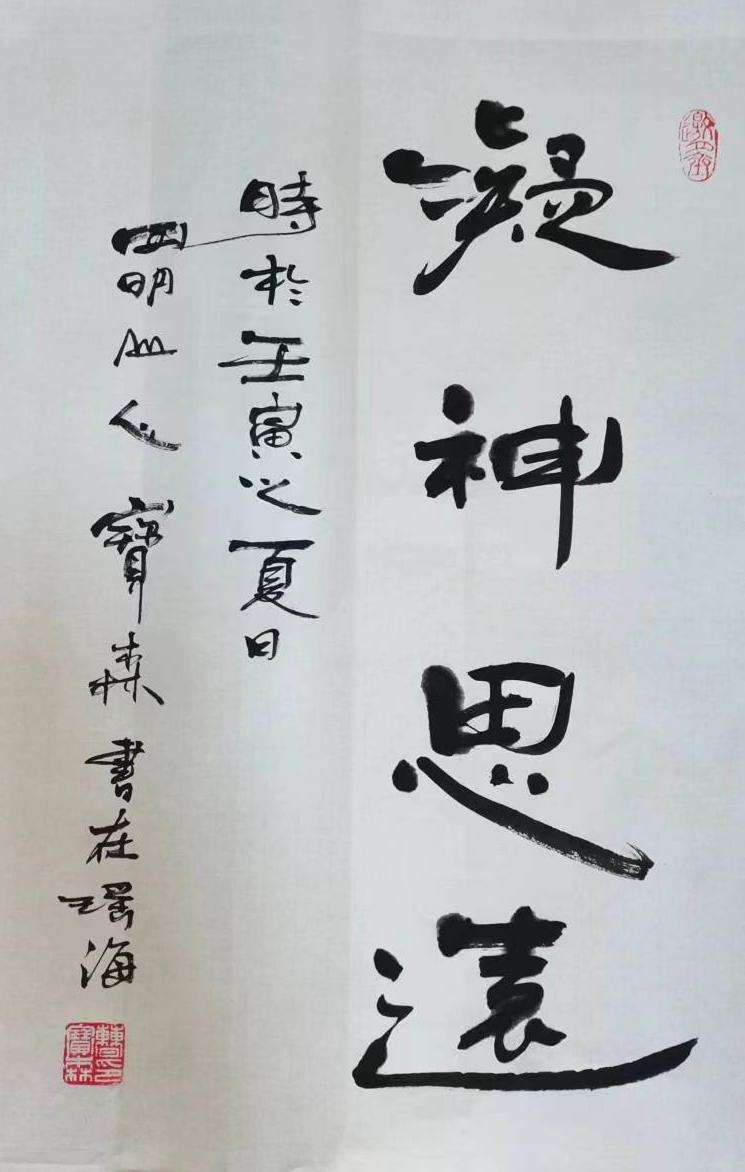 凝神思遠
時於壬寅之夏日
四明山人寶森書在瑶海